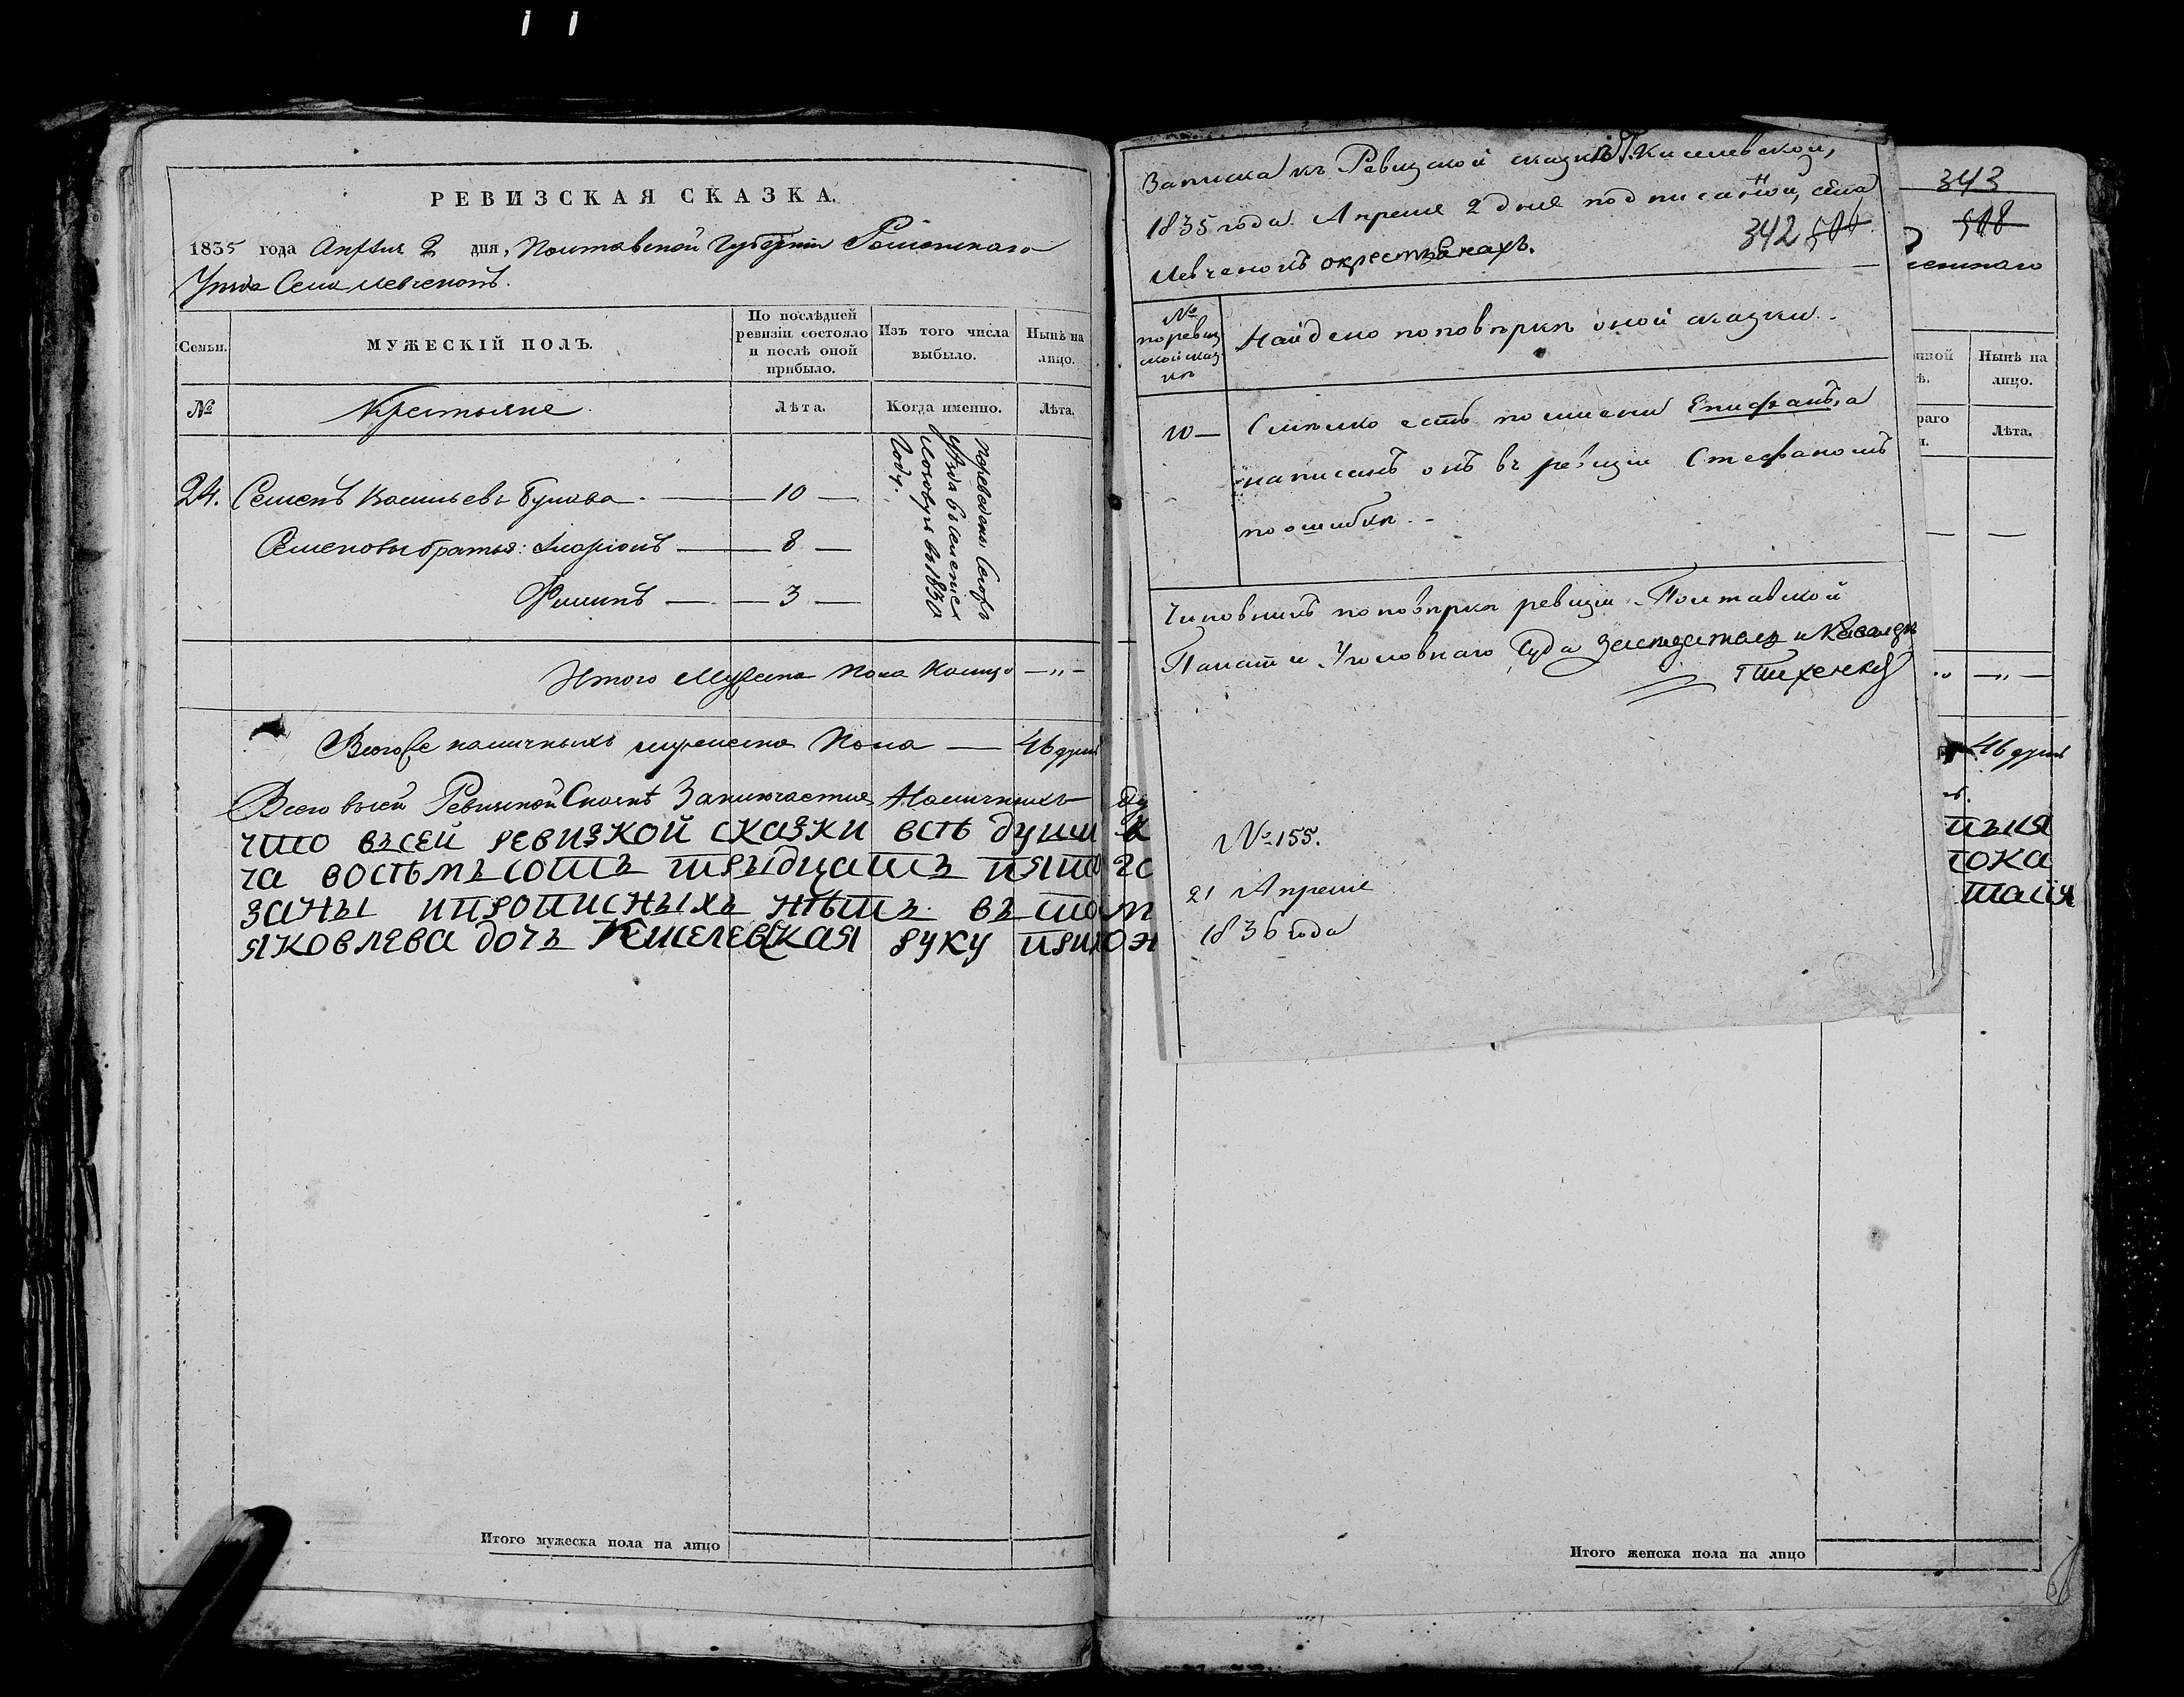 РЕВИЗСКАЯ СКАЗКА.
1835 года Апреля 2 дня, Полтавской Губернии Роменскаго
Уезда Села Левченокъ.
Семьи.
МУЖЕСКІЙ ПОЛЪ.
По послѣдней ревизіи состояло и послѣ оной прибыло.
Изъ того числа выбыло.
Нынѣ на лицо.
№
Крестьяне.
Лѣта.
Когда именно.
Лѣта.
24. Семенъ Васильевъ Булава — 10 —
Семеновы братья: Иларіонъ — 8 —
Филипъ — 3 —
въ 1830
Году.
Итого Мужеска Пола Налицо — „ —
Всего наличныхъ мужеска Пола — 46 душъ
Всего въ сей Ревизской Сказкѣ Заключается Наличныхъ Ду
что въсей ревизкой сказки есть души
ча востьмъ сотъ тръідцатъ пято го
заны ипрописныхъ нѣтъ. въ том
яковлева дочъ Киселевская руку прило
Итого мужеска пола на лицо
Записка къ Ревизской сказке Г. Киселевской,
1835 года Апреля 2 дня подписанной, села
Левченокъ окрестьянахъ.
342
№ по ревизской сказкѣ
Найдено по повѣркѣ оной сказки.
10 —
есть по имени Епифанъ, а
написанъ онъ въ ревизіи Стефаномъ
по ошибкѣ. -
Чиновникъ по повѣркѣ ревизіи Полтавской
Палаты Уголовнаго Суда Заседатель и Кавалеръ
№ 155.
21 Апреля
1836 года
343
508
Нынѣ на лицо.
Лѣта.
— „ —
46 душъ
Итого женска пола на лицо